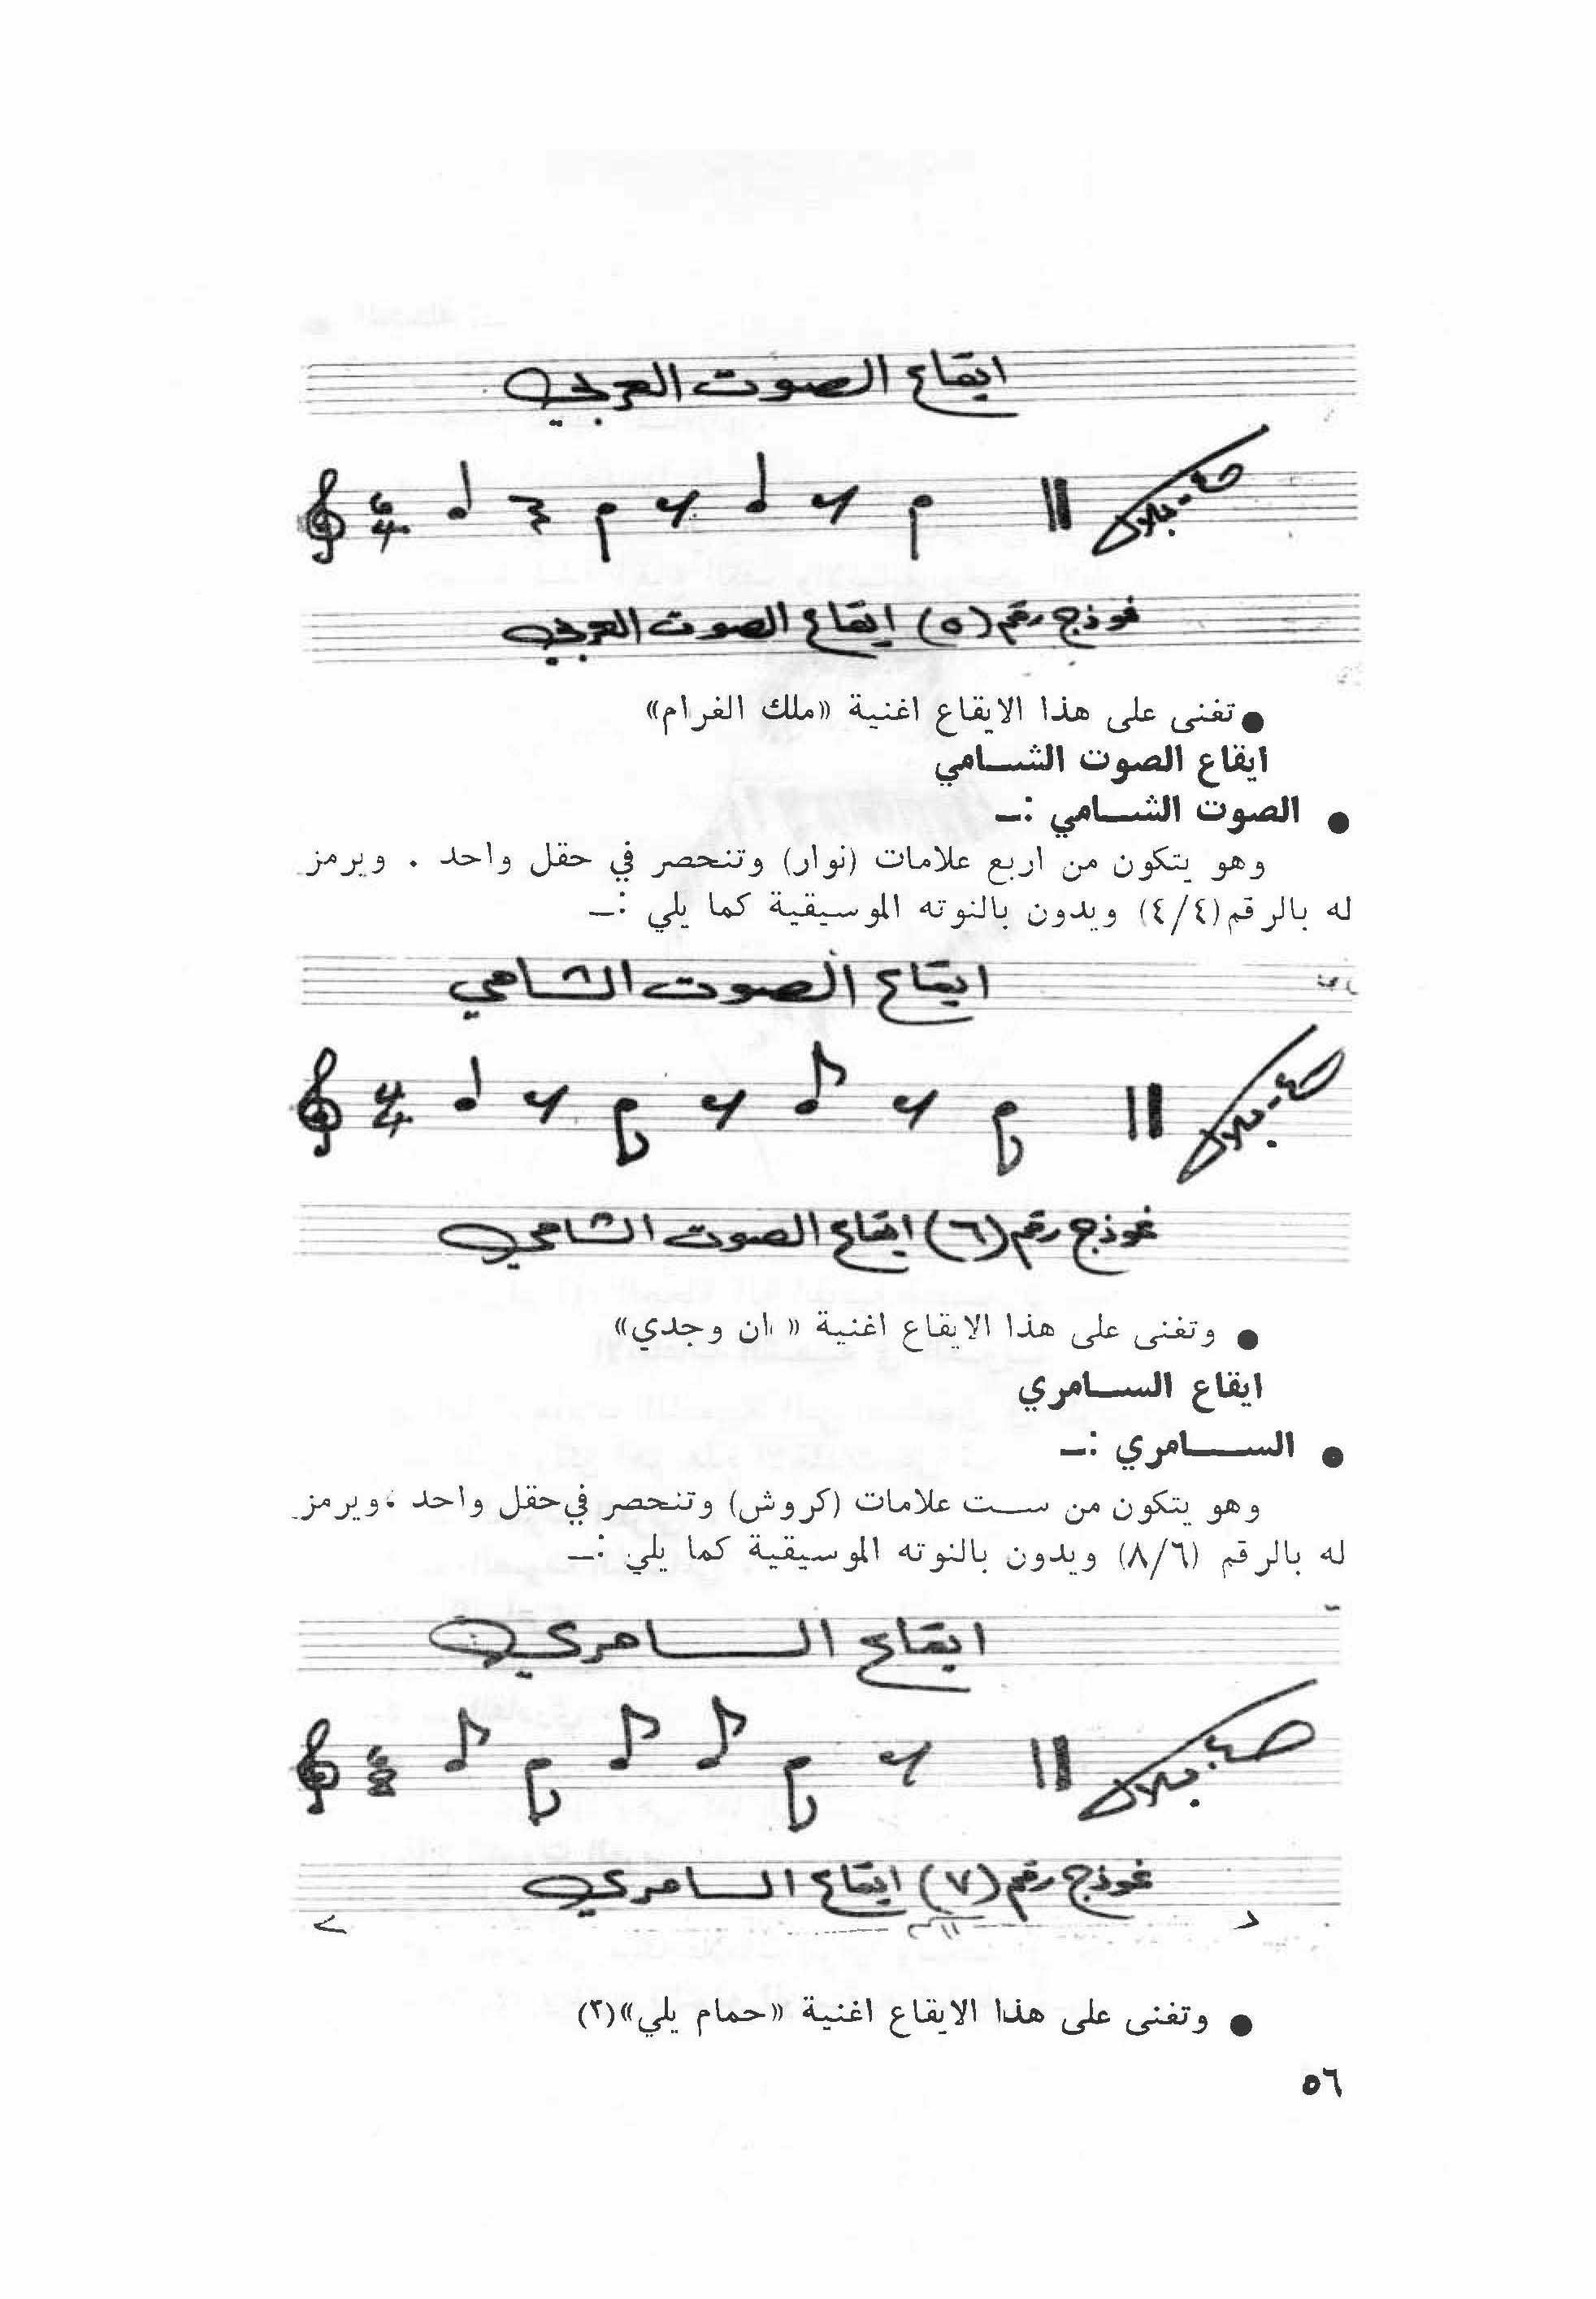 ايقاع الصوت العربي
6/4
نموذج رقم (٥) ايقاع الصوت العربي
● تغنى على هذا الايقاع اغنية «ملك الغرام»
ايقاع الصوت الشـــامي
● الصوت الشـــامي :ـ
وهو يتكون من اربع علامات (نوار) وتنحصر في حقل واحد . ويرمز
له بالرقم (٤/٤) ويدون بالنوته الموسيقية كما يلي :ـ
ايقاع الصوت الشامي
4/4
نموذج رقم (٦) ايقاع الصوت الشامي
● وتغنى على هذا الايقاع اغنية « ان وجدي»
ايقاع الســـامري
● الســـــامري :ـ
وهو يتكون من ســت علامات (كروش) وتنحصر في حقل واحد ، ويرمز
له بالرقم (٨/٦) ويدون بالنوته الموسيقية كما يلي :ـ
ايقاع الســـــامري
6/8
نموذج رقم (٧) ايقاع الســامري
● وتغنى على هذا الايقاع اغنية «حمام يلي»(٣)
٥٦